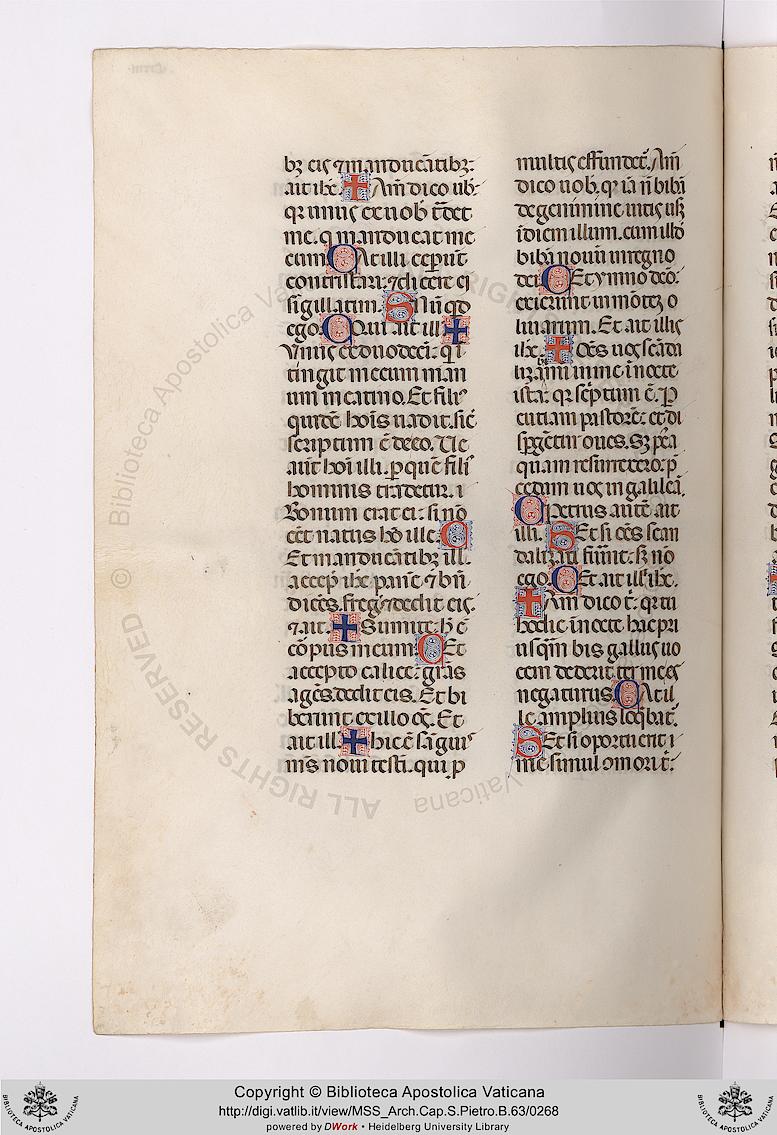 bꝫ eis ⁊ manducātibꝫ
ait ihc̄. + Am̄ dico uob̄
qꝛ unus ex uob̄ t̄det
me. q̄ manducat me
cum. C At illi cep̄ūt
contristari. ⁊ dicere ei
sigillatim. S Nūqd̄
ego. C Qui ait ill̄ +
Vnus ex duodecī. q̄i
tingit mecum man
um in catino. Et fili⁹
quidē hoīs uadit. sic̄
scriptum ē de eo. Ue
aut̄ hoī illi. p̱ quē fili⁹
hominis tradetur.
Bonum erat ei. si nō
eēt natus hō ille. C
Et manducātibꝫ ill.
accep̄ ihc̄ panē ⁊ bn̄
dicēs. freḡ ⁊ dedit eis.
⁊ ait. + Sumite. h̄ ē
corpus meum. C Et
accepto calice. grās
agēs. dedit eis. Et bi
berunt ex illo oēs. Et
ait ill. + hic ē sāguis
m̄s noui testi. qui p̱
multis effundet᷑. Am̄
dico uob. qꝛ iā n̄ bibā
de genimine uitis usꝫ
ī diem illum. cum illd̄
bibā nouū in regno
dei. C Et ymno dcō.
exierunt in mōtē o
liuarum. Et ait illis
ihc̄. + Oēs uos scāda
lizamī in me ī nocte
ista. qꝛ scͥptum ē. P
cutiam pastorē. et di
sp̱gētur oues. Sꝫ p̄ea
quam resurrexero. p̄
cedam uos in galileā.
C Petrus autē ait
illi. S Et si oēs scan
dalizati fuerint. sꝫ nō
ego. C Et ait ill ihc̄.
+ Am̄ dico t̄. qꝛ tu
hodie ī nocte hac pri
usqͣm bis gallus uo
cem dederit. ter me es
negaturus. C At il
le amplius loq̄bat᷑.
S Et si oportuerit
me simul ꝯmori t̄.
Copyright © Biblioteca Apostolica Vaticana
http://digi.vatlib.it/view/MSS_Arch.Cap.S.Pietro.B.63/0268
powered by DWork • Heidelberg University Library